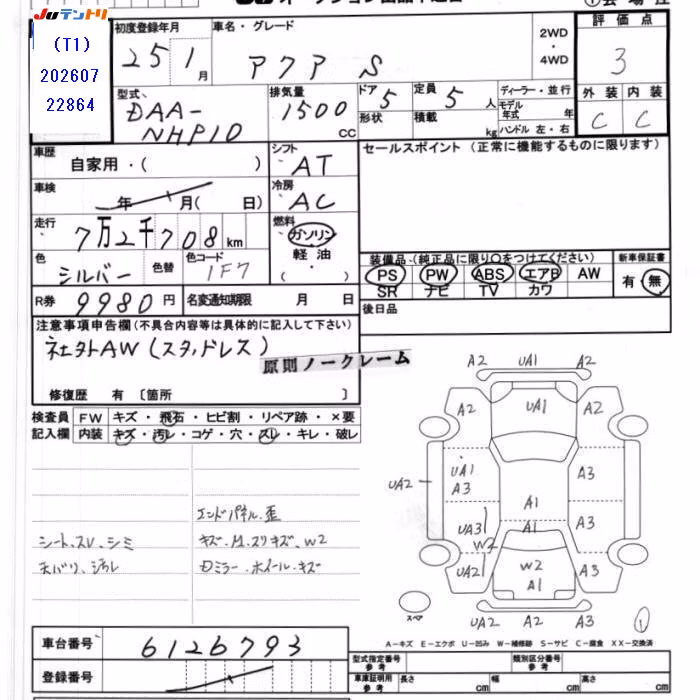 JUテントリ
(T1)
202607
22864
初度登録年月
25 1 月
車名・グレード
アクア S
2WD
・
4WD
評価点
3
外装 内装
C C
型式
DAA-
NHP10
排気量
1500
CC
ドア
5
形状
定員
5 人
積載
kg
ディーラー・並行
モデル年式 年
ハンドル 左・右
車歴
自家用・( )
シフト
AT
車検
年 月( 日)
冷房
AC
走行
7万2千708km
燃料
ガソリン
軽油
( ・ )
色
シルバー
色替
色コード
1F7
R券
9980円
名変通知期限 月 日
セールスポイント(正常に機能するものに限ります)
装備品(純正品に限り○をつけてください)
新車保証書
PS PW ABS エアB AW
有・無
SR ナビ TV カワ
後日品
注意事項申告欄(不具合内容等は具体的に記入して下さい)
社外AW(スタッドレス)
原則ノークレーム
修復歴 有〔箇所 〕
検査員
記入欄
FW キズ・飛石・ヒビ割・リペア跡・×要
内装 キズ・汚レ・コゲ・穴・スレ・キレ・破レ
エンドパネル.歪
シート.スレ.シミ
キズ.M.スリキズ.W2
天バリ.ヨゴレ
Dミラー.ホイール.キズ
A2 UA1 A2
A2 UA1 A2
UA1
A3
A3
UA2
A1
UA3 A1 A3
W2
UA2 W2 A3
A1
UA2 A2 A3
スペア
1
A−キズ E−エクボ U−凹み W−補修跡 S−サビ C−腐食 XX−交換済
車台番号
6126793
登録番号
型式指定番号
参考
類別区分番号
参考
車庫証明用
参考
長さ cm 幅 cm 高さ cm